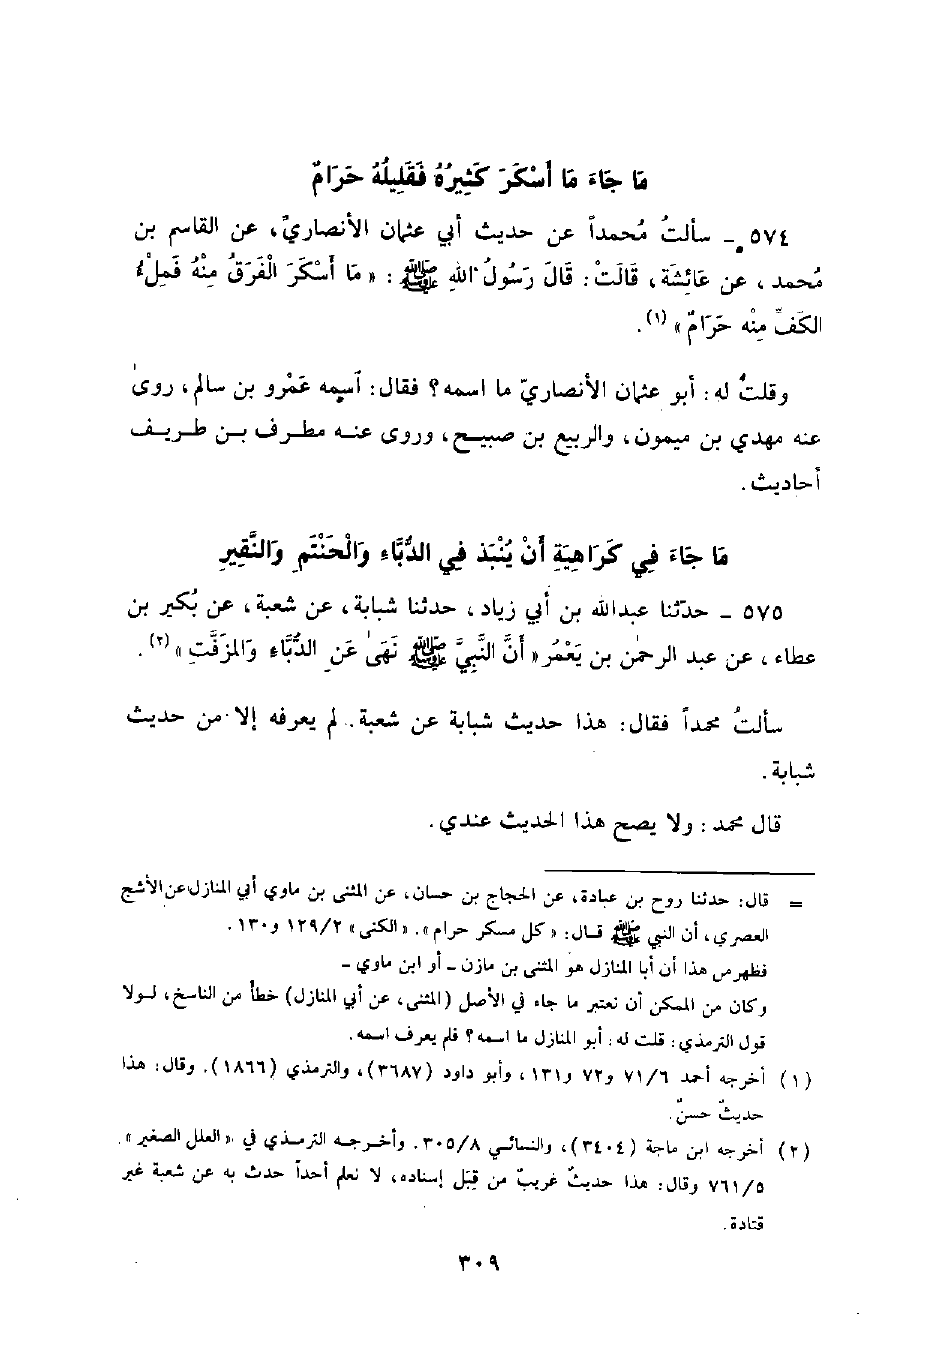 مَا جَاءَ مَا أَسْكَرَ كَثِيرُهُ فَقَلِيلُهُ حَرَامٌ
٥٧٤ - سألتُ مُحمداً عن حديث أبي عثمان الأنصاريِّ، عن القاسم بن
مُحمد، عن عَائِشَة، قَالَتْ: قَالَ رَسُولُ اللهِ ﷺ: «مَا أَسْكَرَ الْفَرَقُ مِنْهُ فَمِلْءُ
الكَفِّ مِنْه حَرَامٌ» (١).
وقلتُ له: أبو عثمان الأنصاريّ ما اسمه؟ فقال: اسمه عَمْرو بن سالم، روى
عنه مهدي بن ميمون، والربيع بن صبيح، وروى عنه مطرف بن طريف
أحاديث.
مَا جَاءَ فِي كَرَاهِيَةِ أَنْ يُنْبَذَ فِي الدُّبَّاءِ وَالْحَنْتَمِ وَالنَّقِيرِ
٥٧٥ - حدّثنا عبدالله بن أبي زياد، حدثنا شبابة، عن شعبة، عن بُكير بن
عطاء، عن عبد الرحمٰن بن يَعْمُر «أَنَّ النَّبِيَّ ﷺ نَهَىٰ عَنِ الدُّبَّاءِ وَالمُزَفَّتِ» (٢).
سألتُ محمداً فقال: هذا حديث شبابة عن شعبة. لم يعرفه إلا من حديث
شبابة.
قال محمد: ولا يصح هذا الحديث عندي.
= قال: حدثنا روح بن عبادة، عن الحجاج بن حسان، عن المثنى بن ماوي أبي المنازل عن الأشج
العصري، أن النبي ﷺ قال: «كل مسكر حرام». «الكنى» ١٢٩/٢ و١٣٠.
فظهر من هذا أن أبا المنازل هو المثنى بن مازن - أو ابن ماوي -
وكان من الممكن أن نعتبر ما جاء في الأصل (المثنى، عن أبي المنازل) خطأ من الناسخ، لولا
قول الترمذي: قلت له: أبو المنازل ما اسمه؟ فلم يعرف اسمه.
(١) أخرجه أحمد ٧١/٦ و٧٢ و١٣١، وأبو داود (٣٦٨٧)، والترمذي (١٨٦٦). وقال: هذا
حديثٌ حسنٌ.
(٢) أخرجه ابن ماجة (٣٤٠٤)، والنسائي ٣٠٥/٨. وأخرجه الترمذي في «العلل الصغير».
٧٦١/٥ وقال: هذا حديثٌ غريبٌ من قِبَل إسناده، لا نعلم أحداً حدث به عن شعبة غير
قتادة.
٣٠٩